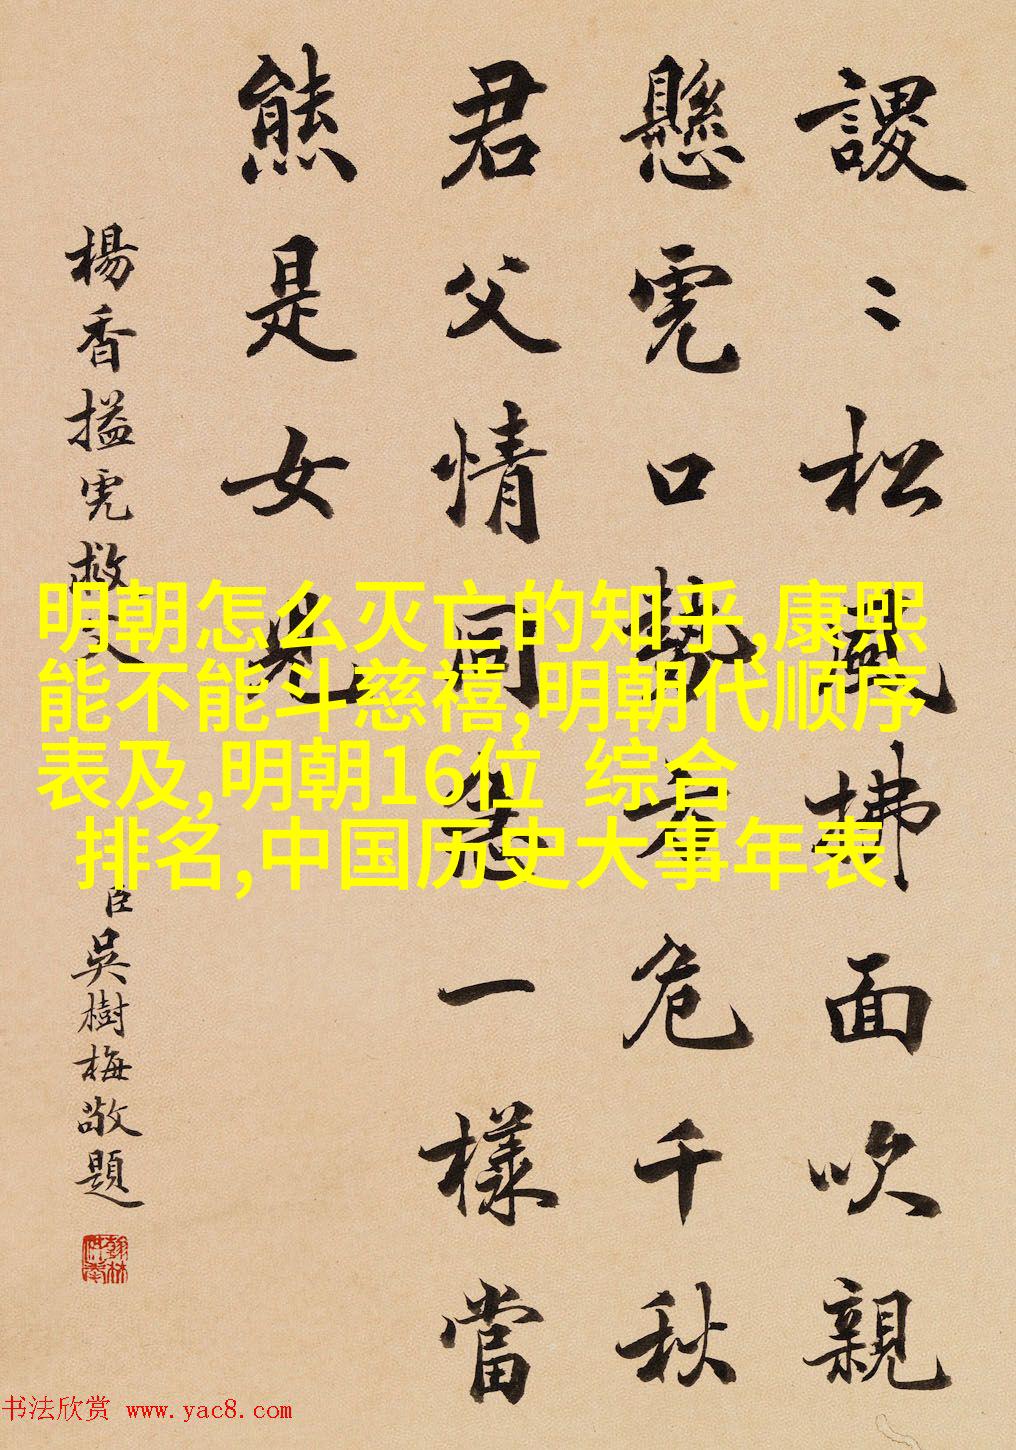 謖〻松風拂面吹親
懸虎口勢方危千秋
君父情同急一樣當
熊是女兒
楊香搤虎救父
臣吳樹梅敬題
明朝怎么灭亡的知乎,康熙
能不能斗慈禧,明朝代顺序
表及,明朝16位 综合
排名,中国历史大事年表
书法欣赏 www.yac8.com